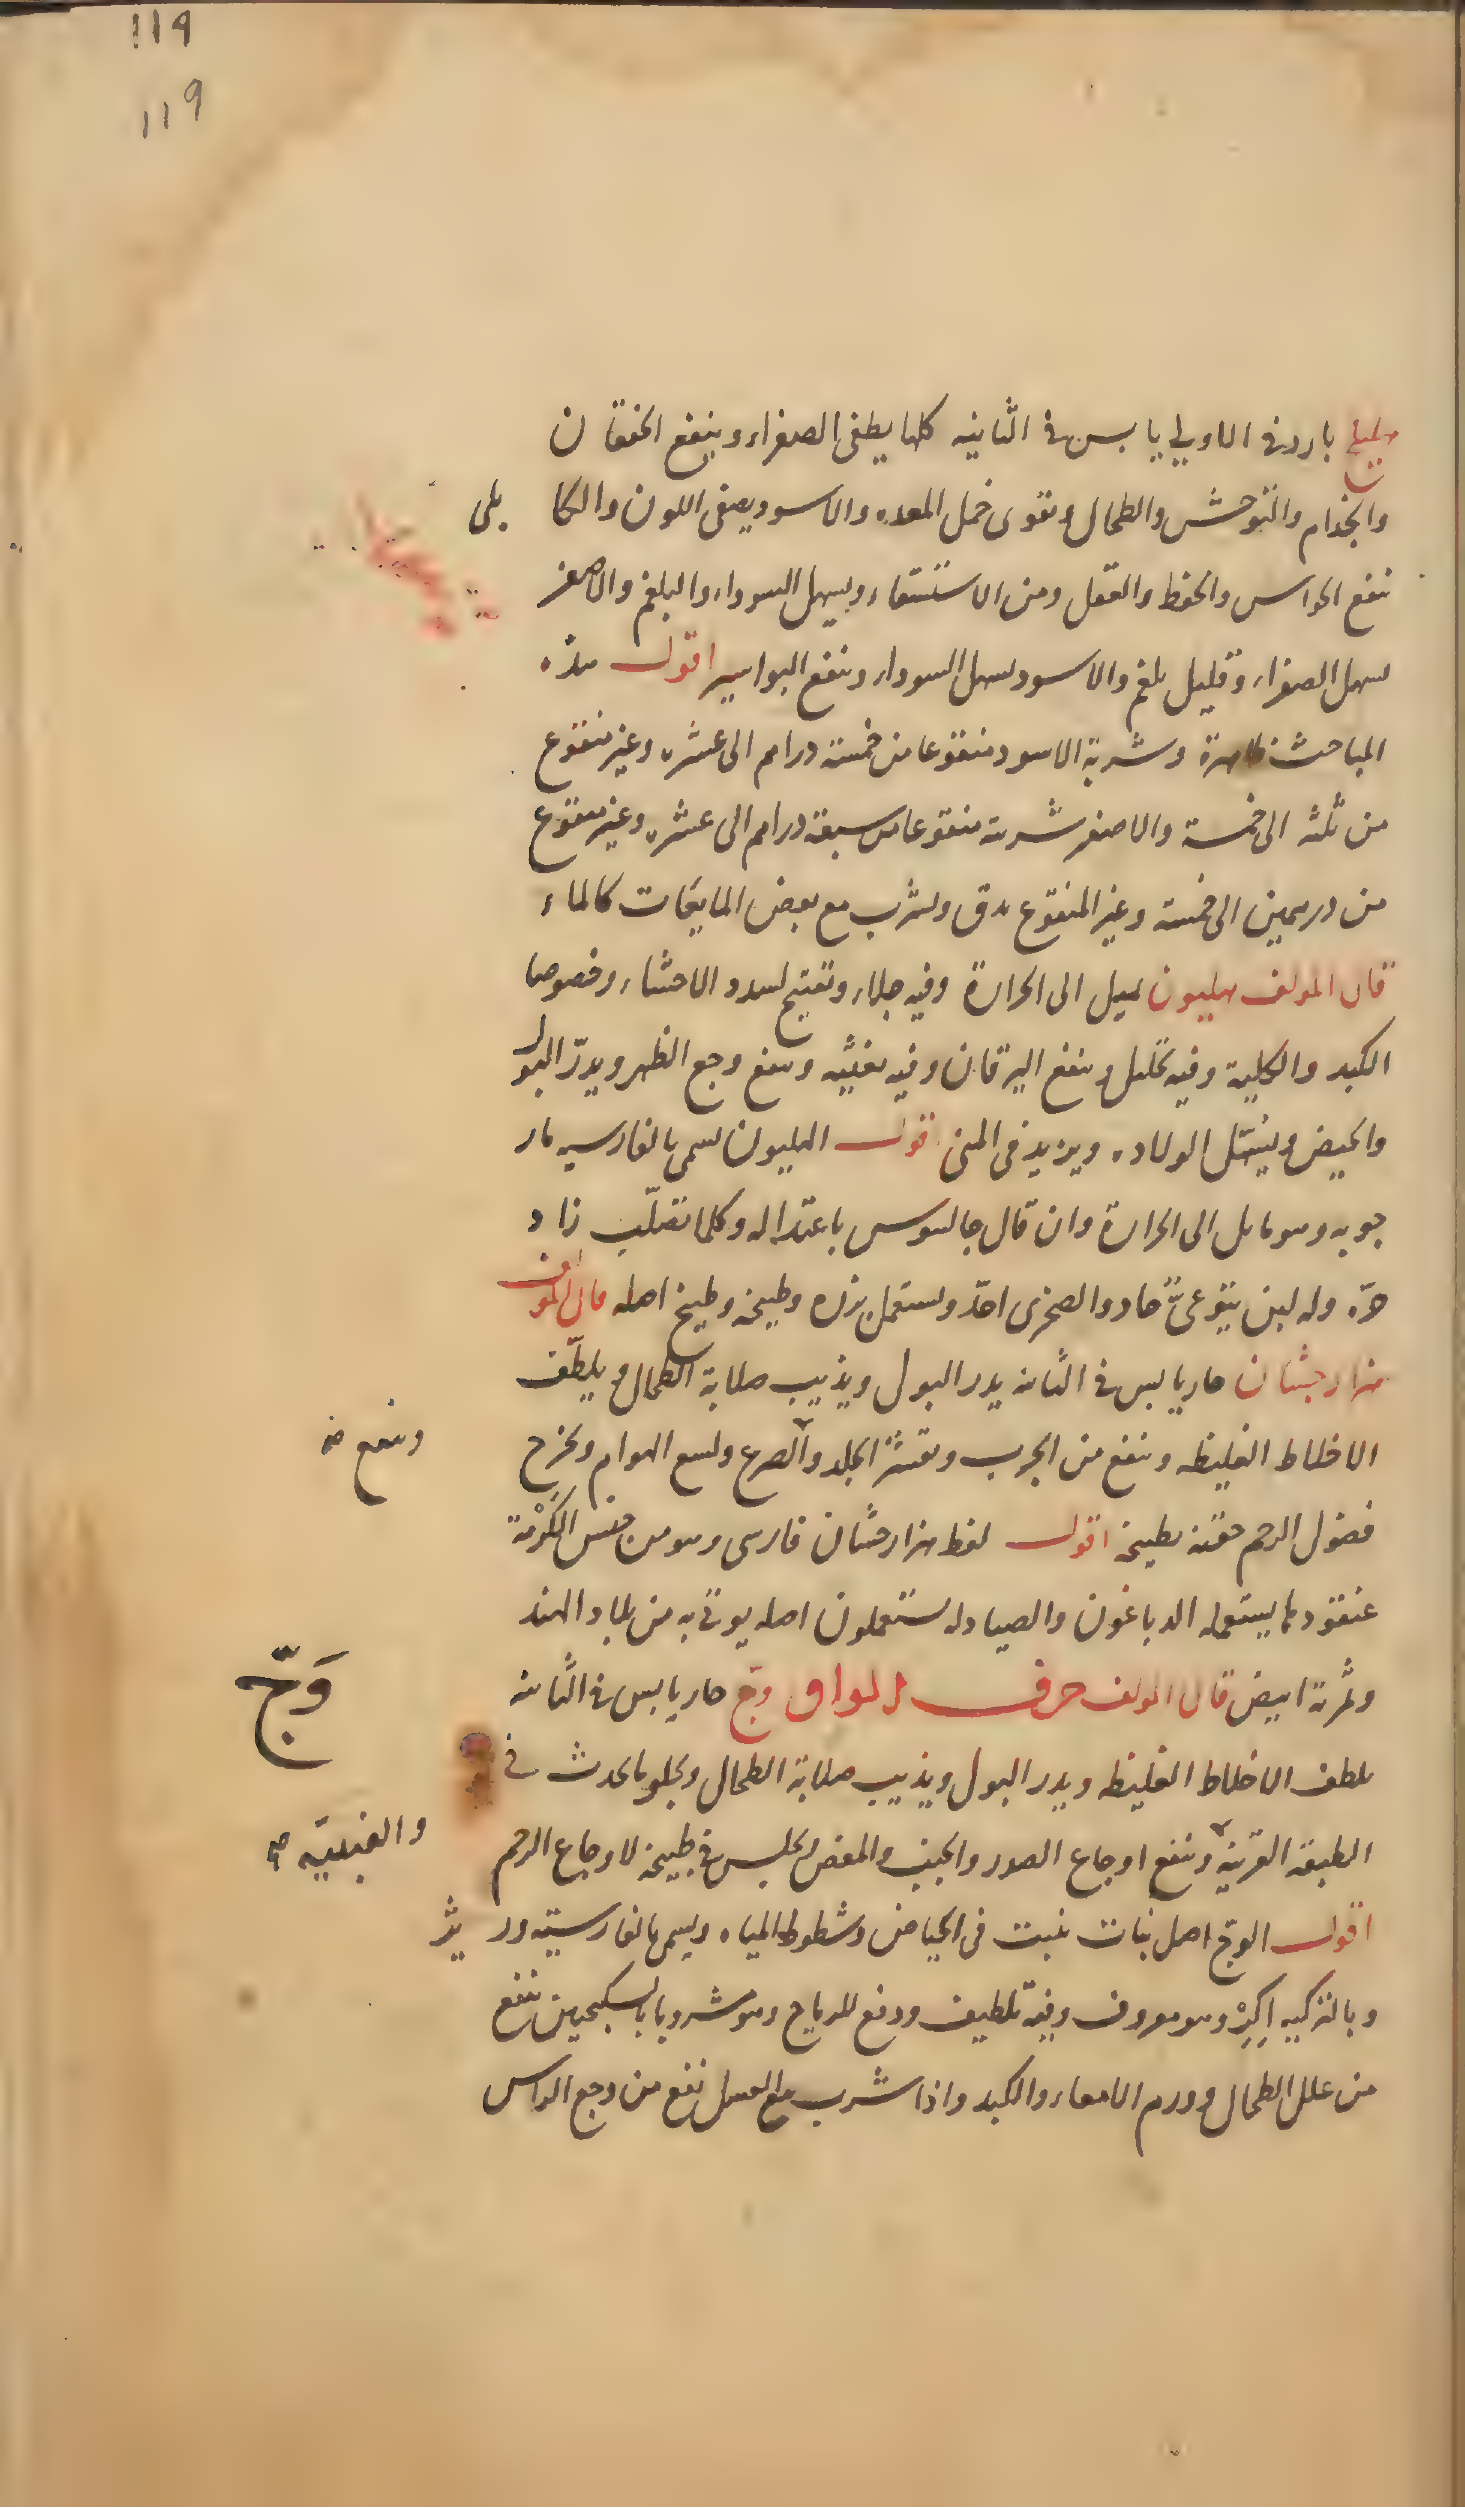 119
119
هليلج بارد فى الاولى يابس فى الثانيه كلها يطفى الصفراء وينفع الخفقان
والجذام والتوحش والطحال وتقوى خمل المعده والاسود يصفى اللون والكابلى
ينفع الحواس والحفظ والعقل ومن الاستسقاء ويسهل السوداء والبلغم والاصفر
يسهل الصفراء وقليل بلغم والاسود يسهل السوداء وينفع البواسير اقول هذه
المباحث ظاهرة وشربة الاسود منقوعا من خمسة دراهم الى عشره وغير منقوع
من ثلثه الى خمسة والاصفر شربته منقوعا من سبعة دراهم الى عشره وغير منقوع
من درهمين الى خمسة وغير المنقوع يدق ويشرب مع بعض المايعات كالماء
قال المولف هليون يميل الى الحرارة وفيه جلاء وتفتيح لسدد الاحشاء وخصوصا
الكبد والكلية وفيه تحليل وينفع اليرقان وفيه تغثيه وينفع وجع الظهر ويدرّ البول
والحيض ويسهّل الولاده ويزيد فى المنى اقول الهليون يسمى بالفارسيه مار
جوبه وهو مايل الى الحرارة وان قال جالينوس باعتداله وكلما تصلّب زاد
حرّه وله لبن يتوعىّ حاد والصخرى احدّ ويستعمل بزره وطبيخه وطبيخ اصله قال المولف
هزارجشان حار يابس فى الثانيه يدر البول ويذيب صلابة الطحال ويلطّف
الاخلاط الغليظه وينفع من الجرب وتقشّر الجلد والصرع ولسع الهوام ويخرج
وينفع صح
فضول الرحم حقنه بطبيخه اقول لفظ هزارجشان فارسى وهو من جنس الكَرْمة
عنقودها يستعمله الدباغون والصيادله يستعملون اصله يوتى به من بلاد الهند
وثمرته ابيض قال المولف حرف الواو وجّ حار يابس فى الثانيه
وَجّ
يلطف الاخلاط الغليظه ويدر البول ويذيب صلابة الطحال ويجلو ما يحدث فى
الطبقة القرنيّه وينفع اوجاع الصدر والجنب والمغص ويجلس فى طبيخه لاوجاع الرحم
والعنبيّه صح
اقول الوجّ اصل نبات ينبت فى الحياض وشطوط المياه ويسمى بالفارسيّه ور يژ
وبالتركيه اكِرْ وهو معروف وفيه تلطيف ودفع للرياح وهو مشروبا بالسكنجبين ينفع
من علل الطحال وورم الامعاء والكبد واذا شرب مع العسل نفع من وجع الراس